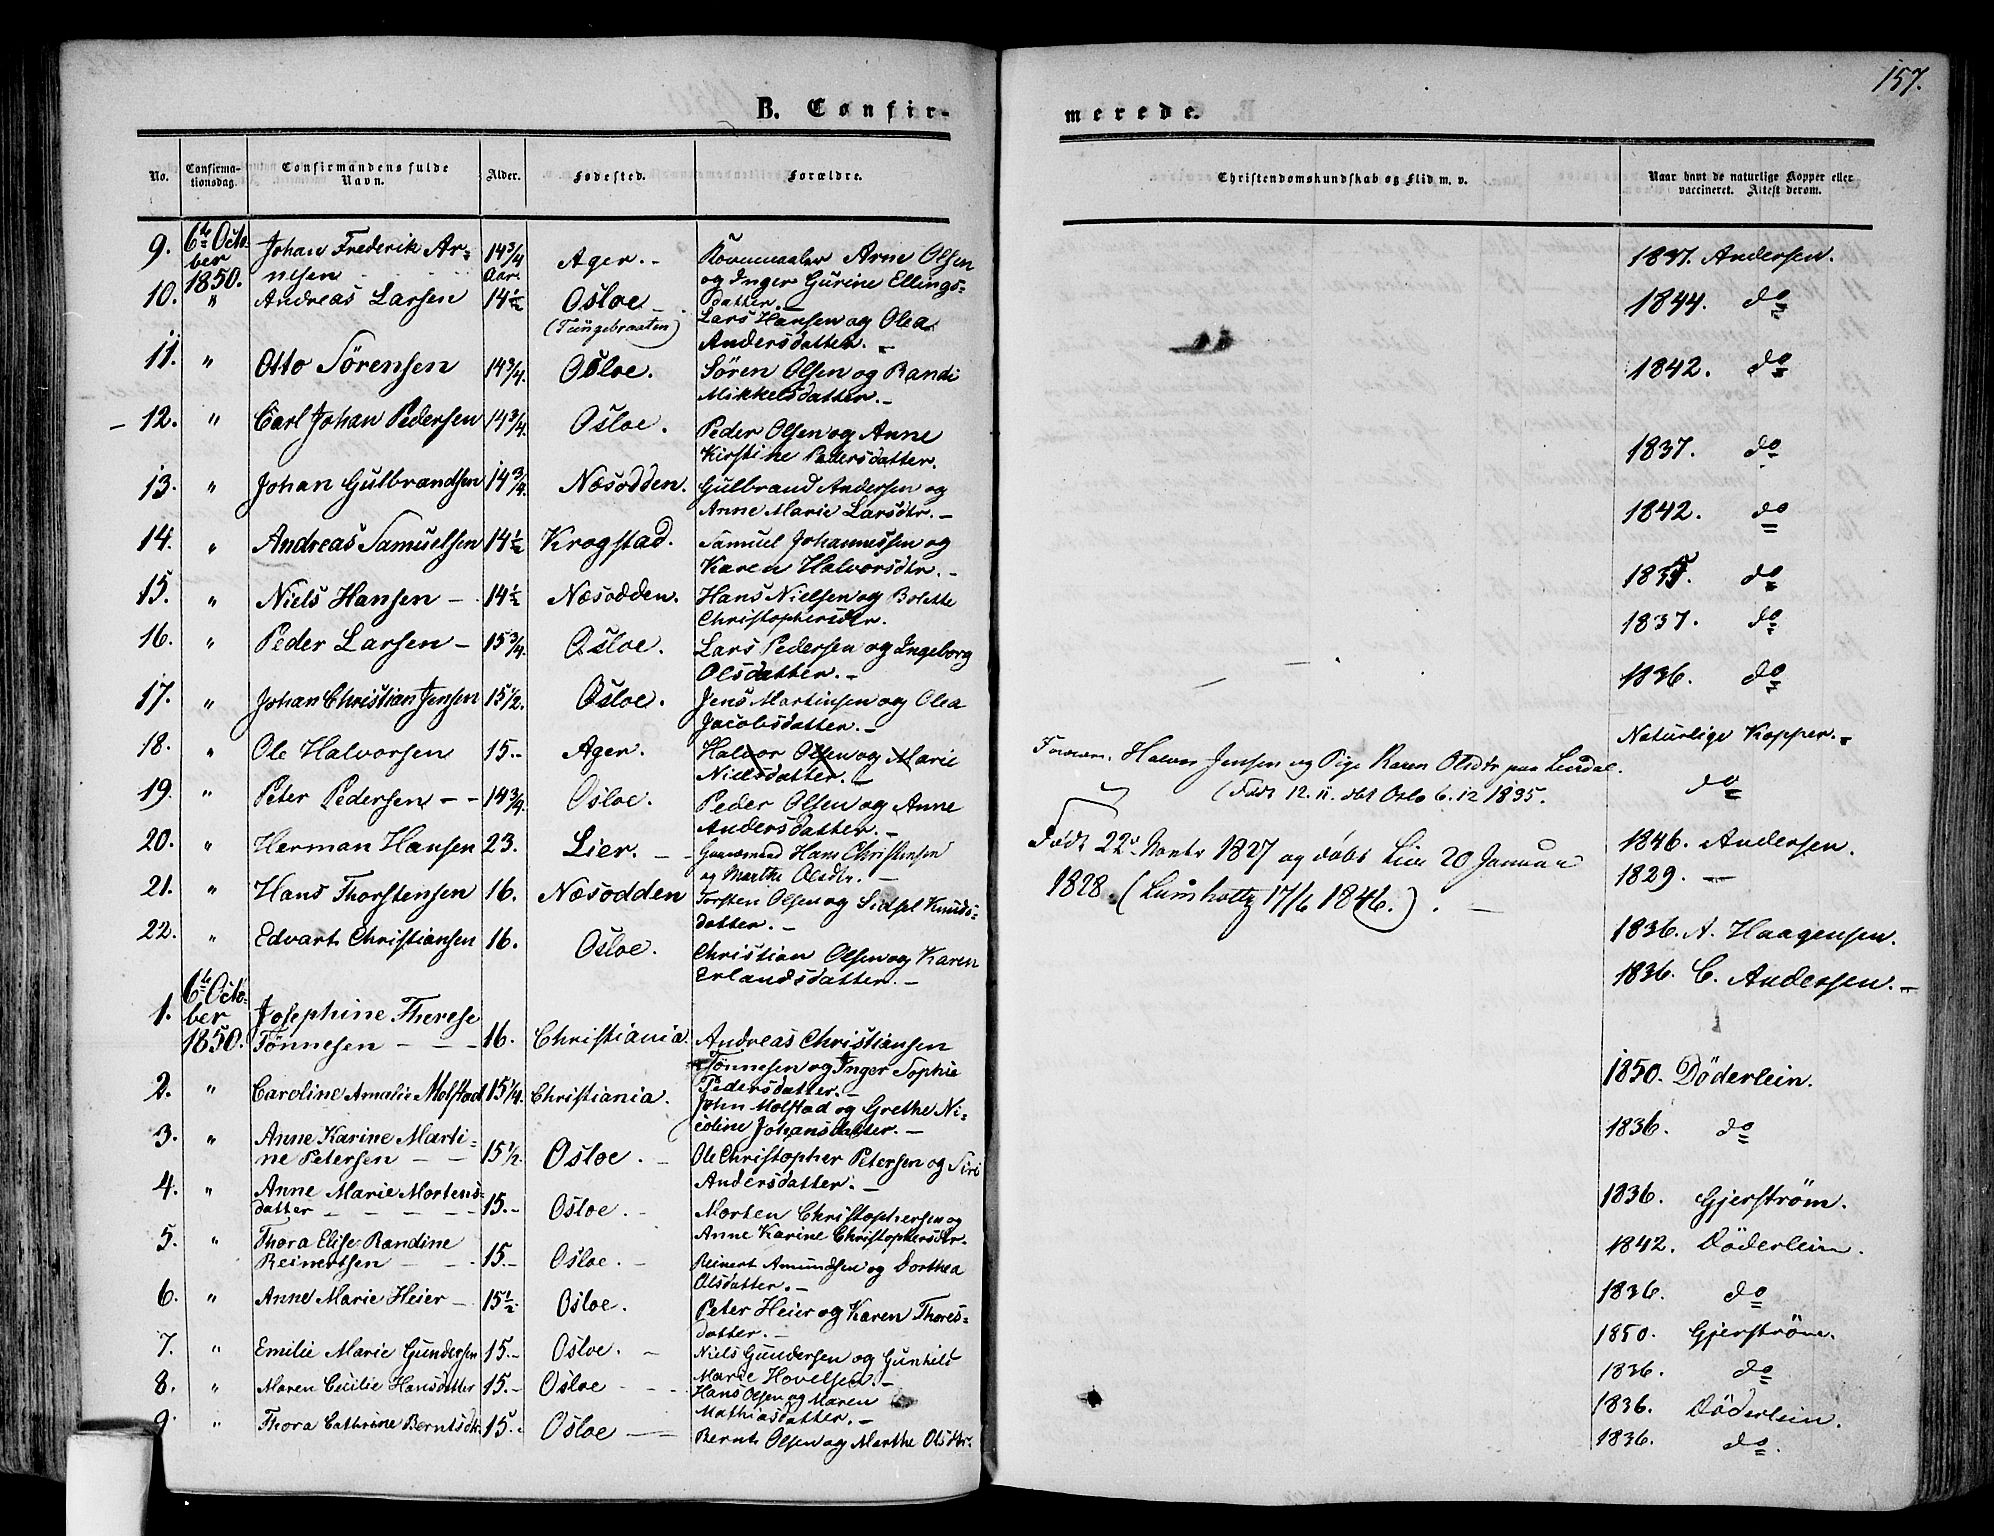 157.
B. Confir-
merede.
No.
Confirma-
tionsdag.
Confirmandens fulde
Navn.
Alder.
Fødested.
Forældre.
Christendomskundskab og Flid m. v.
Naar havt de naturlige Kopper eller
vaccineret. Attest derom.
9. 6te Octo- Johan Frederik Ar- 14 3/4 Ager. Arne Olsen 1837. Andersen.
ber nesen Aar. og Inger Gurine Ellings-
1850. datter.
10. " Andreas Larsen 14 1/2 Osloe Lars Hansen og Olea 1844. do
Andersdatter.
11. " Otto Sörensen 14 3/4. Osloe. Sören Olsen og Randi 1842. do
Mikkelsdatter.
- 12. " Carl Johan Pedersen 14 3/4. Osloe. Peder Olsen og Anne 1837. do
Kirstine Pedersdatter.
13. " Johan Gulbrandsen 14 3/4. Næsodden. Gulbrand Andersen og 1842. do
Anne Marie Larsdtr.
14. " Andreas Samuelsen 14 1/2 Krogstad. Samuel Johannessen og do
Karen Halvorsdtr.
15. " Niels Hansen - 14 1/2 Næsodden. Hans Nielsen og Bolette 1837. do
Christophersdtr.
16. " Peder Larsen - 15 3/4. Osloe. Lars Pedersen og Ingeborg 1836. do
Olsdatter.
17. " Johan Christian Jensen 15 1/2. Osloe. Jens Martinsen og Olea Naturlige Kopper.
Jacobsdatter.
18. " Ole Halvorsen 15. Ager. Halvor Olsen og Marie Halvor Jensen og Pige Karen Olsdtr do
Nielsdatter. (Født 12. 11. dbt Oslo 6. 12 1835.
19. " Peter Pedersen - - 14 3/4. Osloe. Peder Olsen og Anne
Andersdatter.
20. " Herman Hansen 23. Lier. - - Hans Christensen Født 22de 1827 og døbt Lier 20 Januar 1846. Andersen.
og Marthe Olsdtr. 1828. (Lumholtz 17/6 1846.).
21. " Hans Thorstensen 16. Næsodden Torsten Olsen og Sidsel Knuds- 1829. -
datter. 1836. A. Haagensen.
22. " Edvart Christiansen 16. Osloe. Christian Olsen og Karen 1836. C. Andersen.
Erlandsdatter.
1. 6te Octo- Josephine Therese
ber Tönnesen - - - 16. Christiania. Andreas Christiansen 1850. Döderlein.
1850. Tönnesen og Inger Sophie
Pedersdatter.
2. " Caroline Amalie Molstad 15 1/4. Christiania. John Molstad og Grethe Ni- 1836. do
coline Johansdatter.
3. " Anne Karine Marti-
ne Petersen - - 15 1/2. Osloe. - Ole Christopher Petersen og Siri 1836. Gjerström.
Andersdatter.
4. " Anne Marie Mortens-
datter - - - - - 15. Osloe. - Morten Christophersen og 1842. Döderlein.
Anne Karine Christophersdtr.
5. " Thora Elise Randine
Reinertsen - - - 15. Osloe. - Reinert Amundsen og Dorthea 1836. do
Olsdatter.
6. " Anne Marie Heier - 15 1/2. Osloe. Peter Heier og Karen Thores- 1850. Gjerström.
datter.
7. " Emilie Marie Gundersen 15. Osloe. - Niels Gundersen og Gunhild 1836. do
Marie Hovelsen.
8. " Maren Cecilie Hansdatter 15. Osloe - - - Hans Olsen og Maren 1836. Döderlein.
Mathiasdatter.
9. " Thora Cathrine Berntsdtr. 15. Osloe - - Bernt Olsen og Marthe Olsdtr. 1836. do.